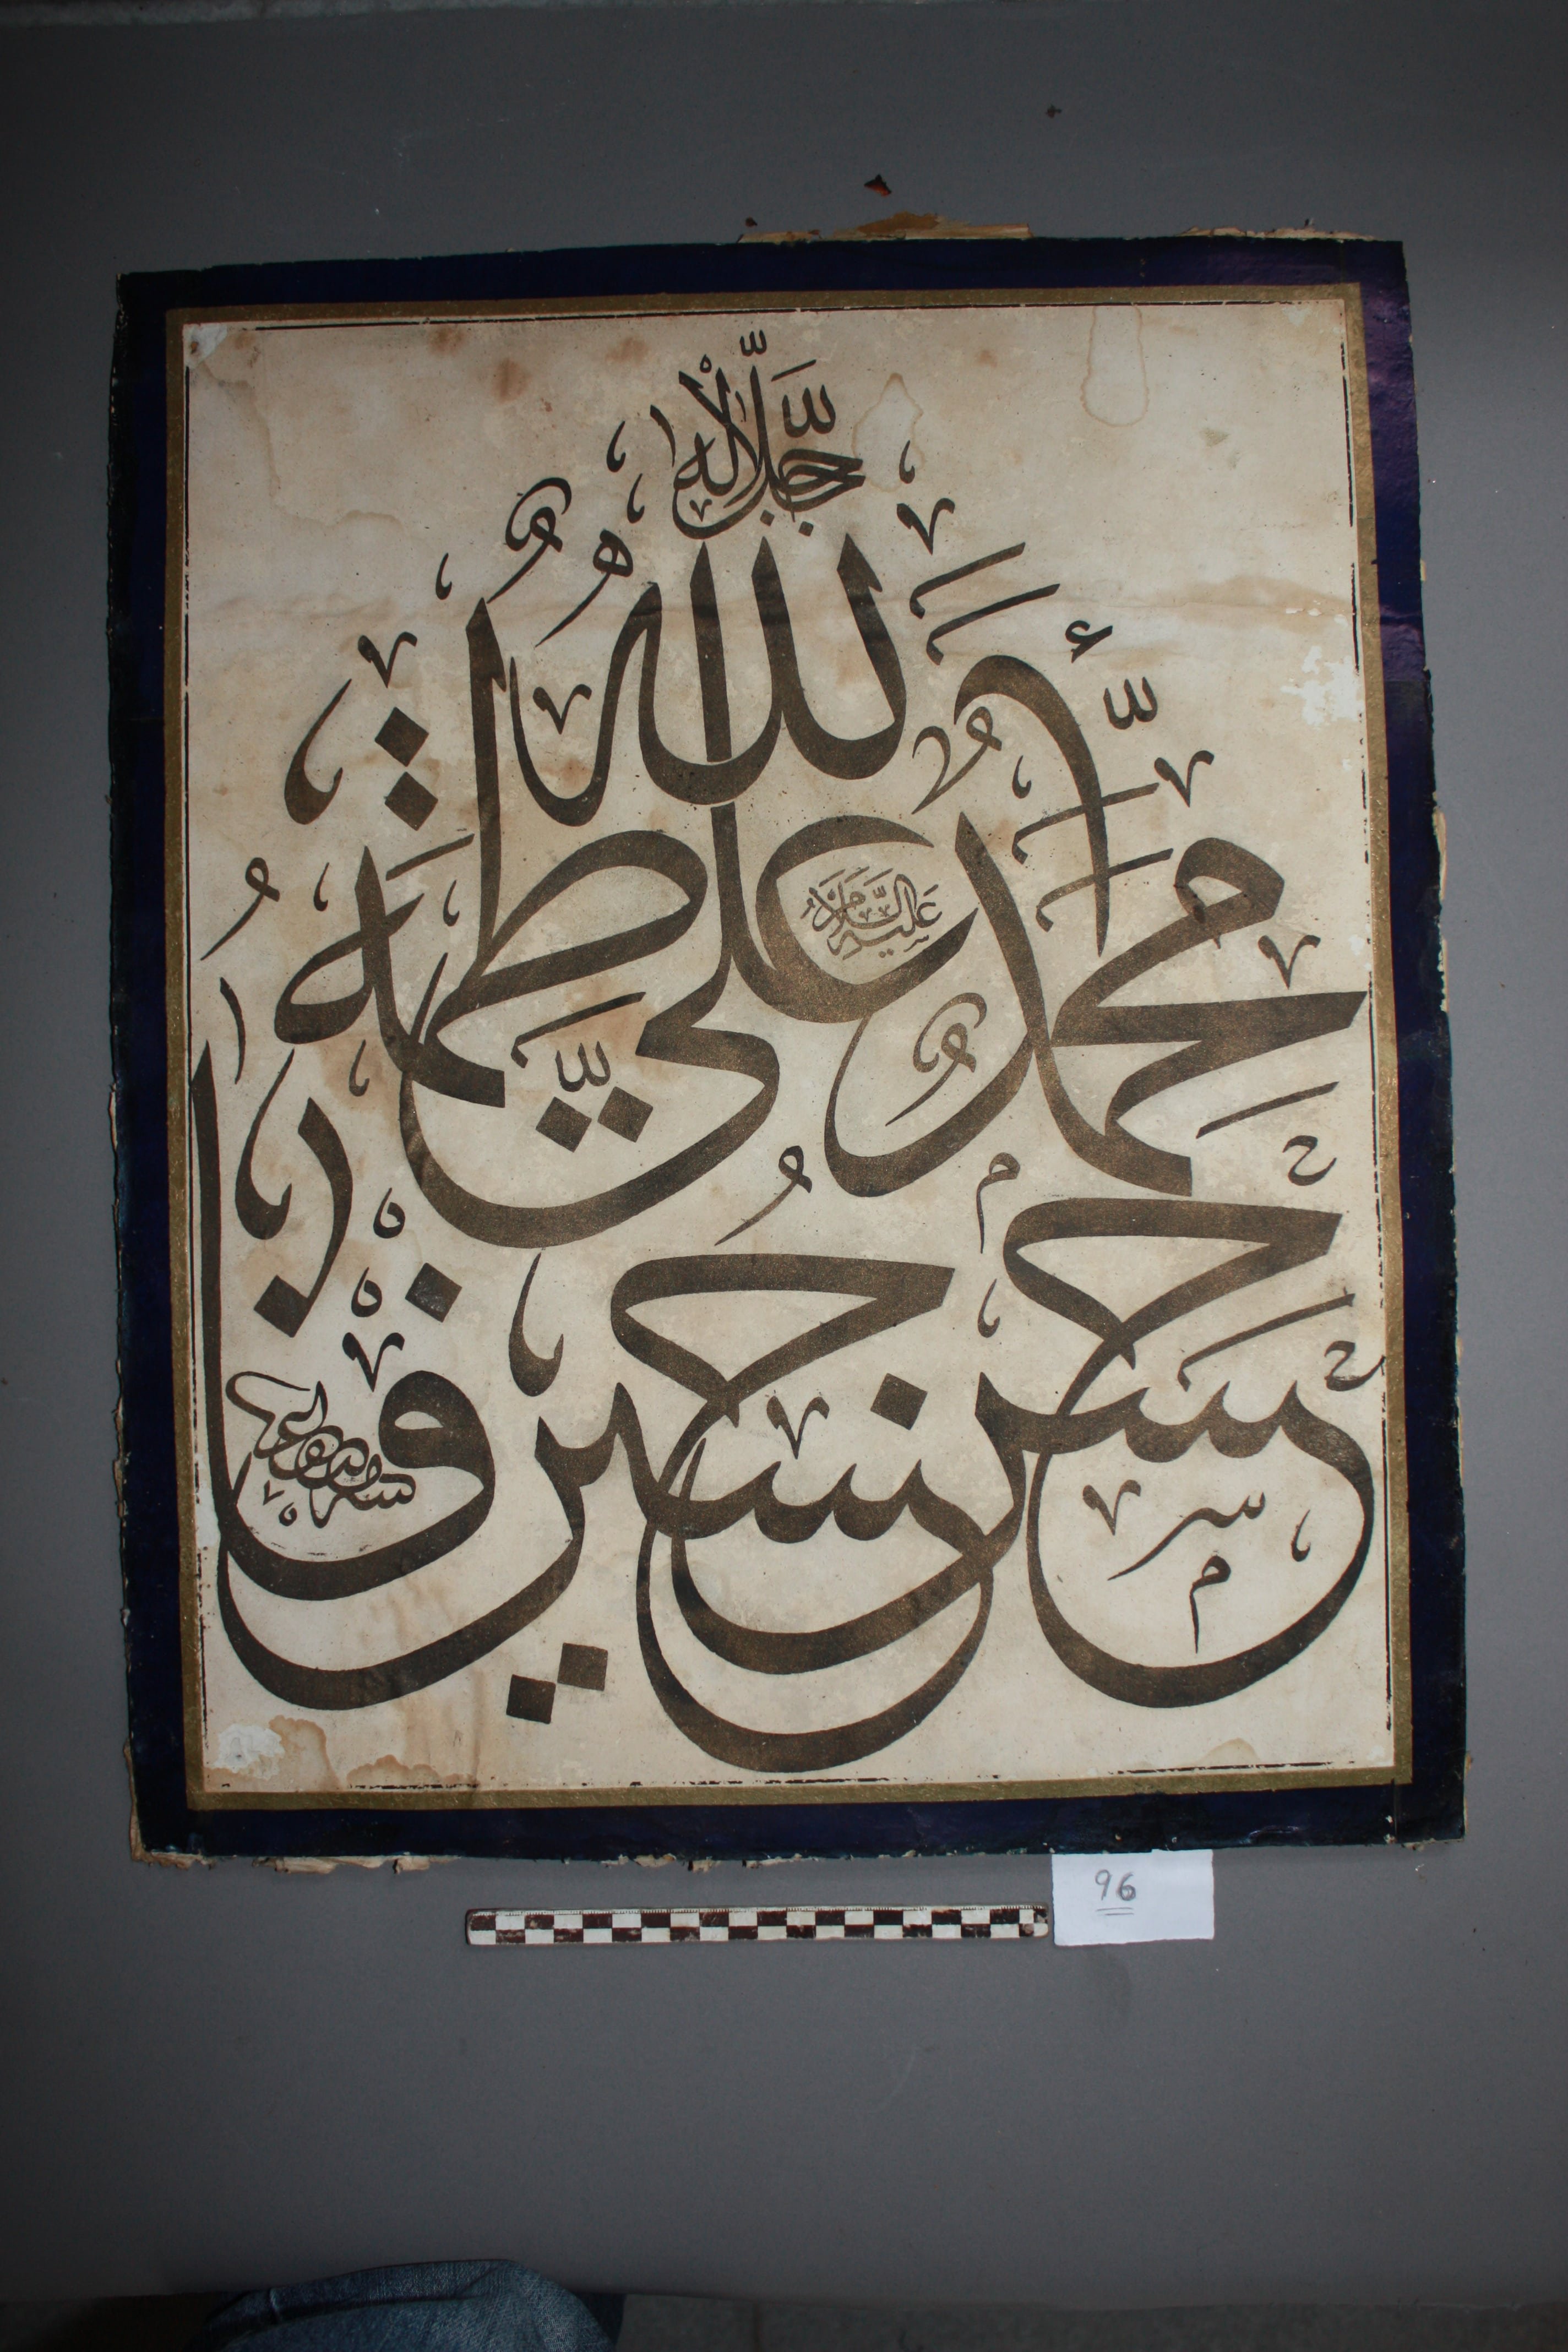 جل جلاله
الله
محمد علي
عليه السلام
فاطمة
حسن حسين
96